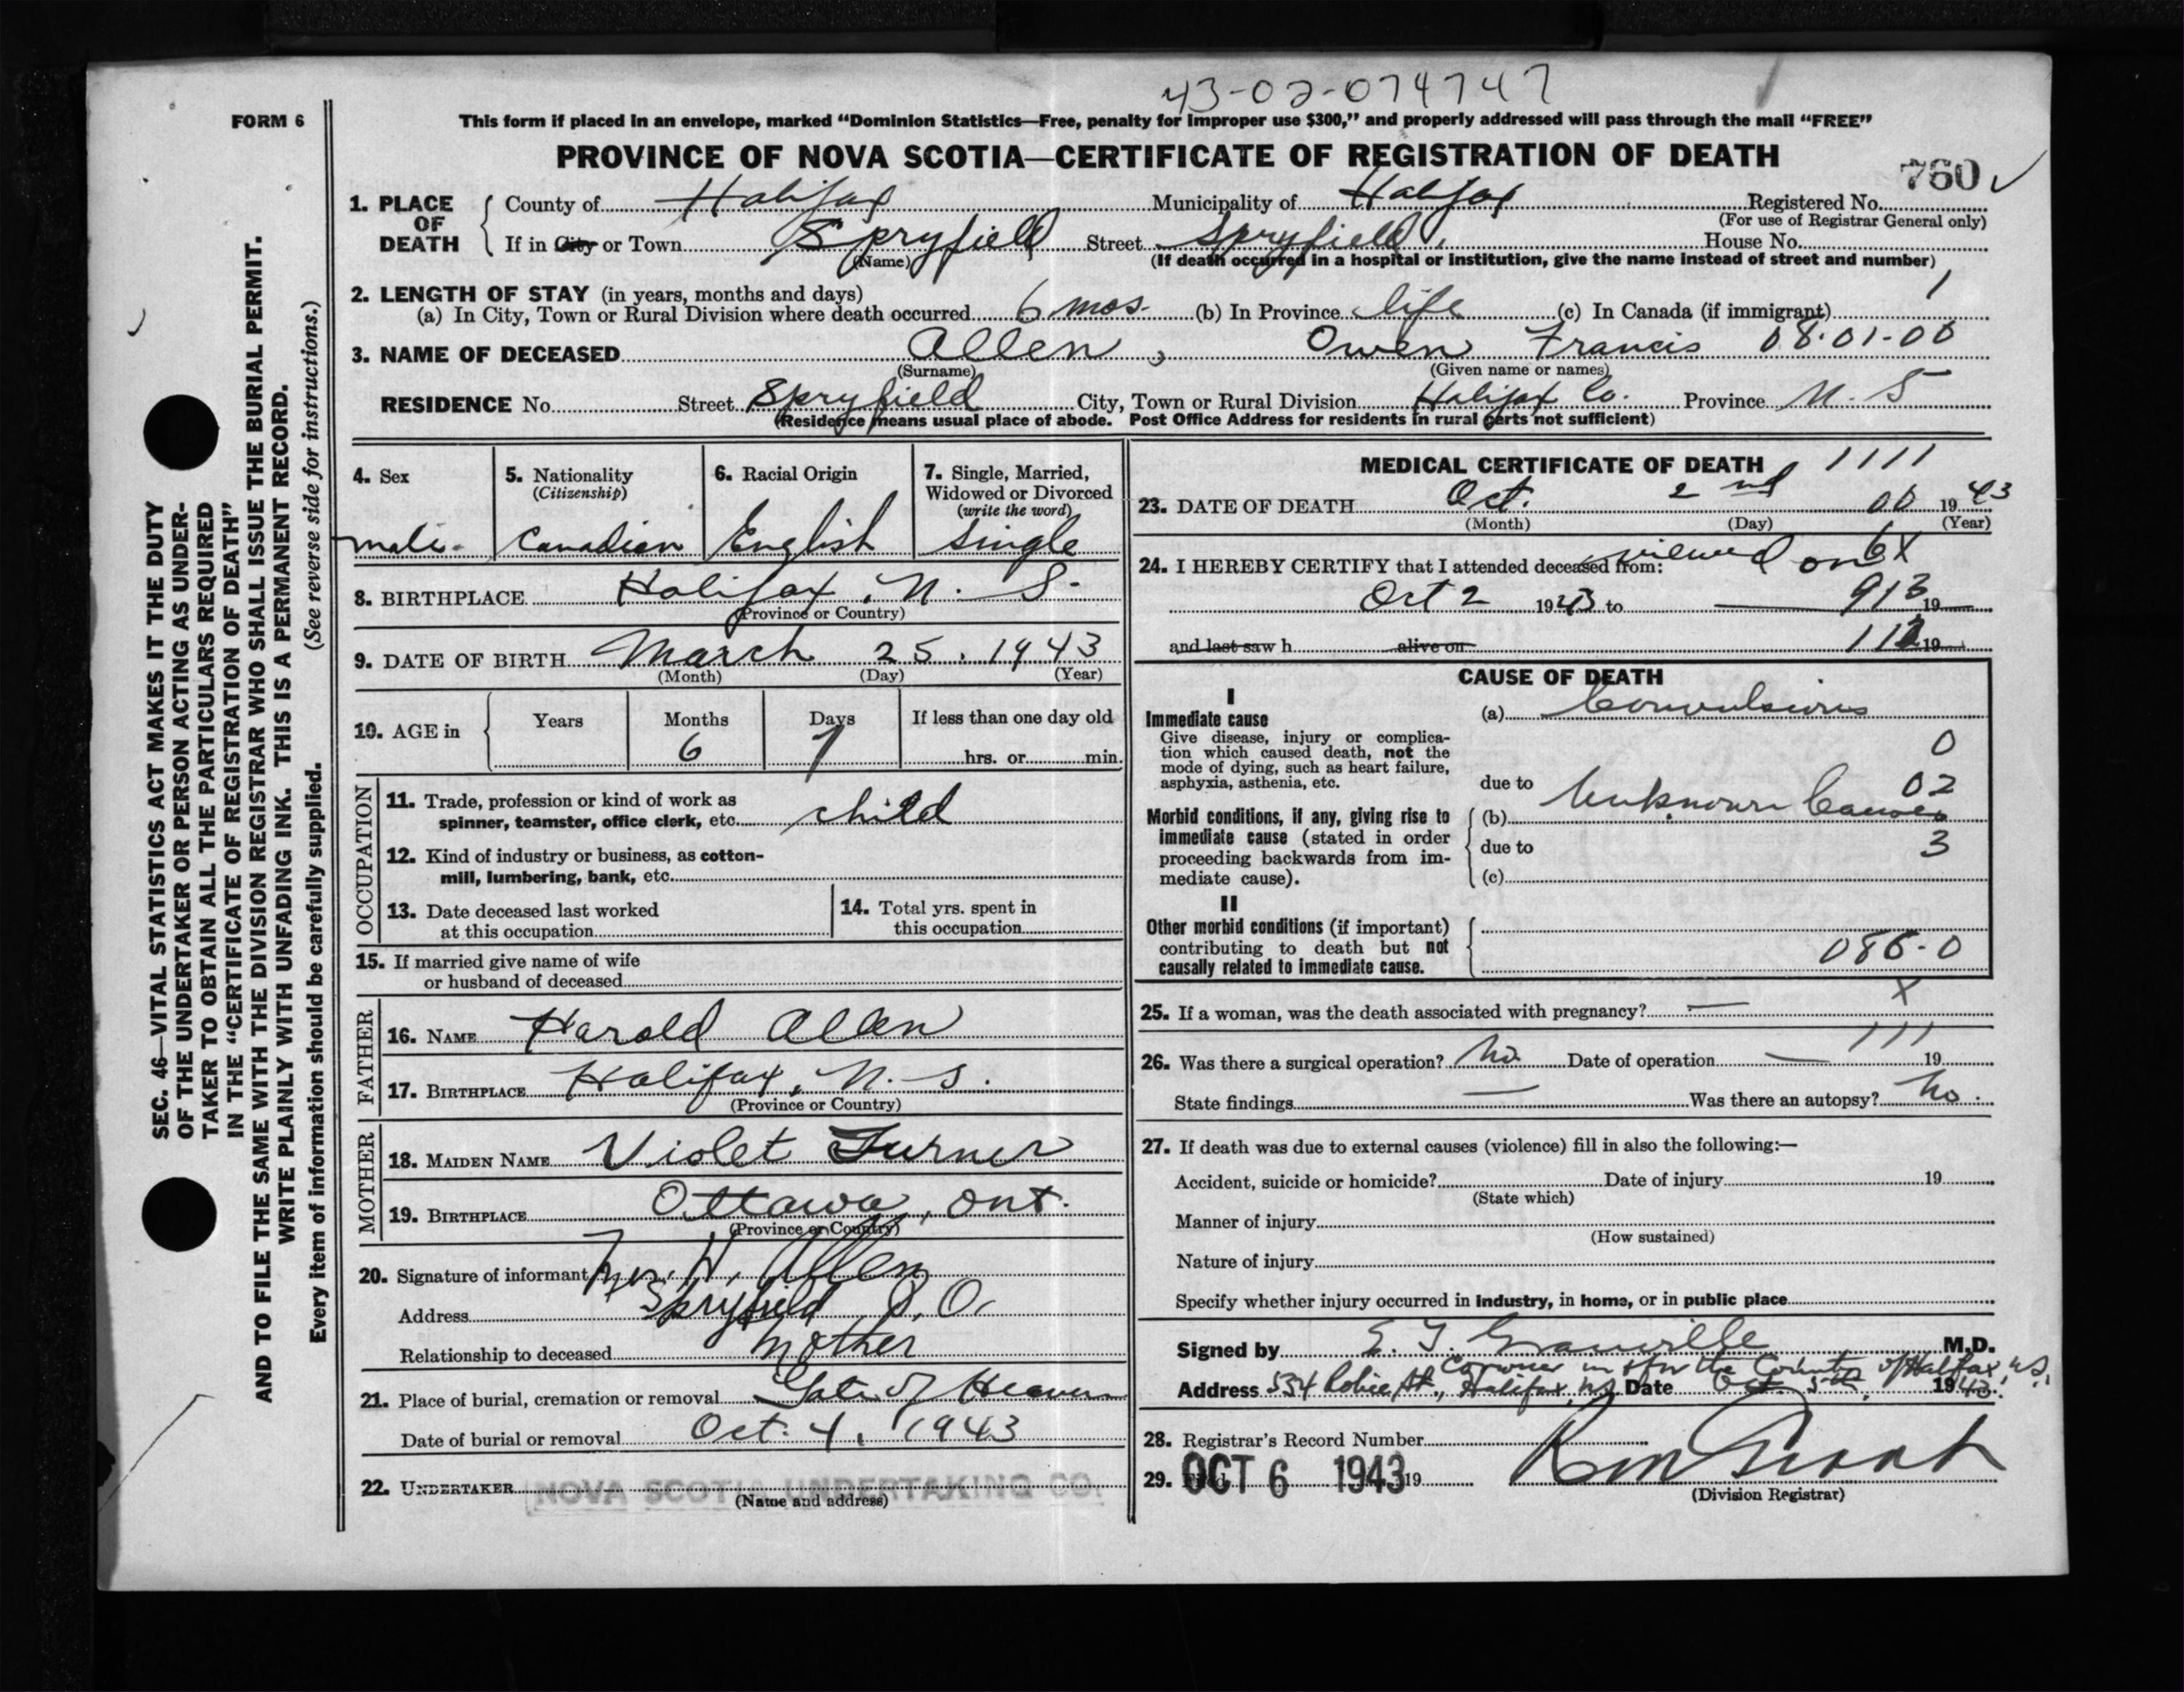 43-02-074747
FORM 6
This form if placed in an envelope, marked "Dominion Statistics—Free, penalty for improper use $300," and properly addressed will pass through the mail "FREE"
PROVINCE OF NOVA SCOTIA—CERTIFICATE OF REGISTRATION OF DEATH
760
1. PLACE OF DEATH
County of Halifax Municipality of Halifax Registered No.
(For use of Registrar General only)
If in City or Town Spryfield Street Spryfield House No.
(Name) (If death occurred in a hospital or institution, give the name instead of street and number)
2. LENGTH OF STAY (in years, months and days)
(a) In City, Town or Rural Division where death occurred 6 mos. (b) In Province life (c) In Canada (if immigrant) 1
3. NAME OF DECEASED Allen, Owen Francis 08-01-00
(Surname) (Given name or names)
RESIDENCE No. Street Spryfield City, Town or Rural Division Halifax Co. Province N. S
(Residence means usual place of abode. Post Office Address for residents in rural parts not sufficient)
4. Sex
male.
5. Nationality
(Citizenship)
Canadian
6. Racial Origin
English
7. Single, Married,
Widowed or Divorced
(write the word)
Single
8. BIRTHPLACE Halifax, N. S.
(Province or Country)
9. DATE OF BIRTH March 25, 1943
(Month) (Day) (Year)
10. AGE in
Years Months Days If less than one day old
6 7 hrs. or min.
OCCUPATION
11. Trade, profession or kind of work as
spinner, teamster, office clerk, etc. child
12. Kind of industry or business, as cotton-
mill, lumbering, bank, etc.
13. Date deceased last worked
at this occupation
14. Total yrs. spent in
this occupation
15. If married give name of wife
or husband of deceased
FATHER
16. NAME Harold Allen
17. BIRTHPLACE Halifax, N. S.
(Province or Country)
MOTHER
18. MAIDEN NAME Violet Turner
19. BIRTHPLACE Ottawa, Ont.
(Province or Country)
20. Signature of informant Mrs. H. Allen
Address Spryfield P.O.
Relationship to deceased Mother
21. Place of burial, cremation or removal Gate of Heaven
Date of burial or removal Oct. 4, 1943
22. UNDERTAKER NOVA SCOTIA UNDERTAKING CO.
(Name and address)
MEDICAL CERTIFICATE OF DEATH 1111
23. DATE OF DEATH Oct. 2nd 00 1943
(Month) (Day) (Year)
24. I HEREBY CERTIFY that I attended deceased from: viewed on 6X
Oct 2 1943 to — 913 19
and last saw h alive on 112 19
CAUSE OF DEATH
I
Immediate cause
Give disease, injury or complica-
tion which caused death, not the
mode of dying, such as heart failure,
asphyxia, asthenia, etc.
(a) Convulsions
0
due to
02
Morbid conditions, if any, giving rise to
immediate cause (stated in order
proceeding backwards from im-
mediate cause).
(b) Unknown Causes
due to 3
(c)
II
Other morbid conditions (if important)
contributing to death but not
causally related to immediate cause.
086-0
X
25. If a woman, was the death associated with pregnancy? —
111
26. Was there a surgical operation? No. Date of operation — 19
State findings — Was there an autopsy? No.
27. If death was due to external causes (violence) fill in also the following:—
Accident, suicide or homicide? Date of injury 19
(State which)
Manner of injury
(How sustained)
Nature of injury
Specify whether injury occurred in industry, in home, or in public place
Signed by E. T. Granville M.D.
Coroner in & for the County of Halifax, N.S.
Address 534 Robie St., Halifax, N.S. Date Oct 5th, 1943.
28. Registrar's Record Number
29. Filed OCT 6 1943 19
(Division Registrar)
SEC. 46—VITAL STATISTICS ACT MAKES IT THE DUTY
OF THE UNDERTAKER OR PERSON ACTING AS UNDER-
TAKER TO OBTAIN ALL THE PARTICULARS REQUIRED
IN THE "CERTIFICATE OF REGISTRATION OF DEATH"
AND TO FILE THE SAME WITH THE DIVISION REGISTRAR WHO SHALL ISSUE THE BURIAL PERMIT.
WRITE PLAINLY WITH UNFADING INK. THIS IS A PERMANENT RECORD.
Every item of information should be carefully supplied. (See reverse side for instructions.)